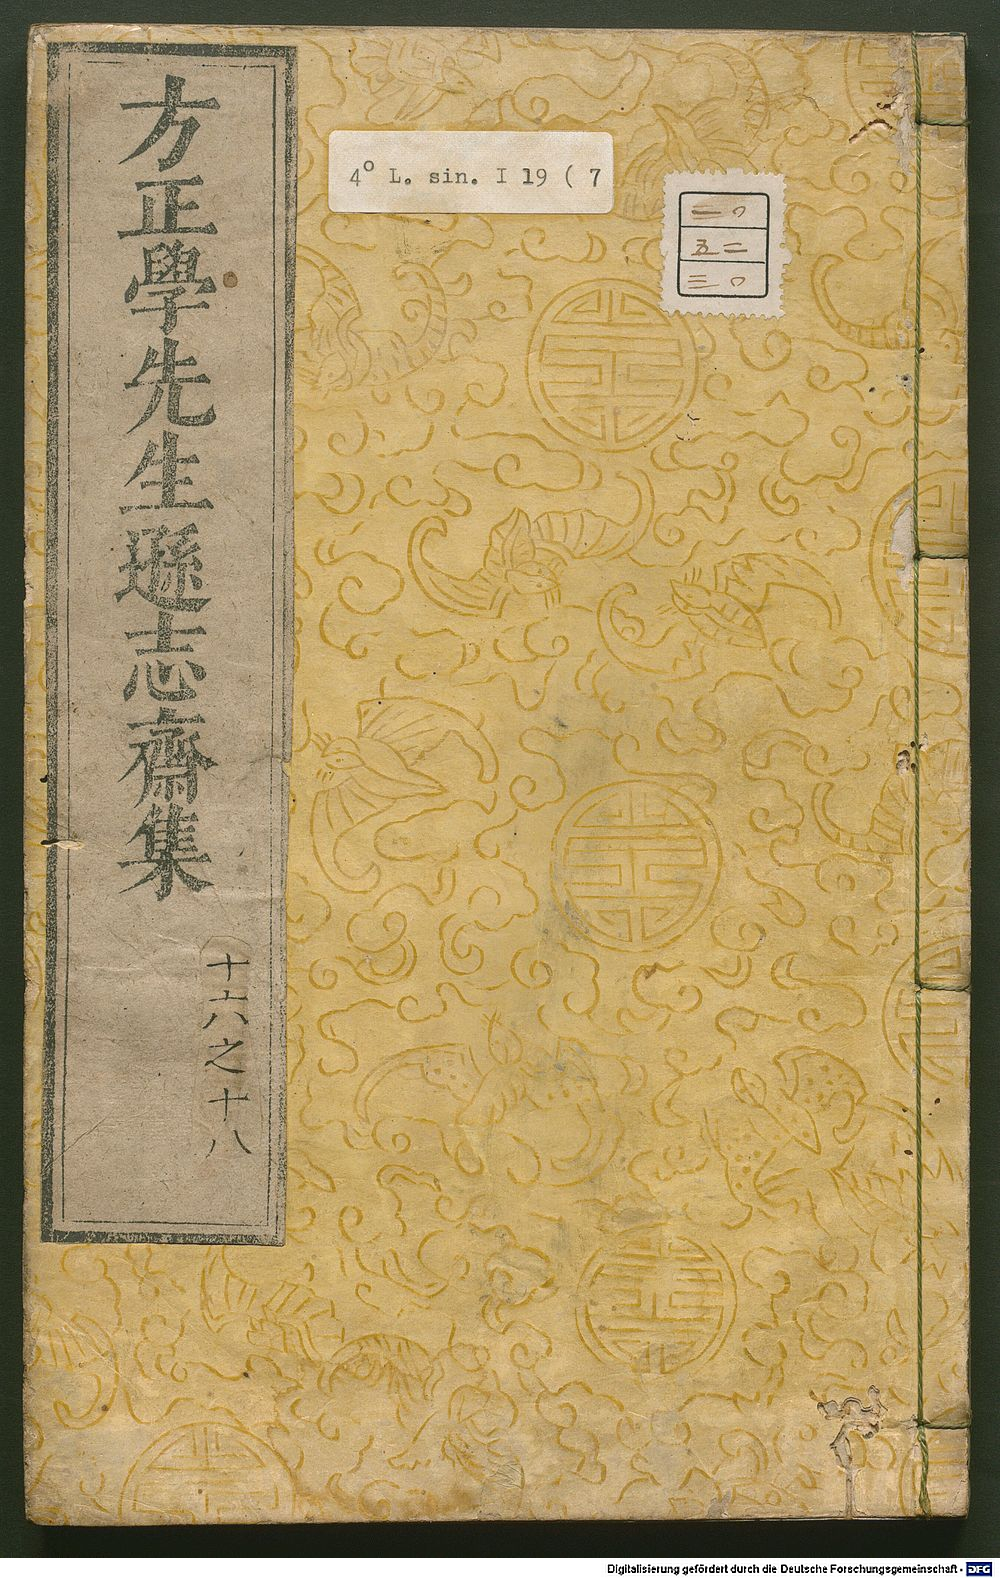 方正學先生遜志齋集
十六之十八
4° L. sin. I 19 ( 7
二〇
五二
三〇
Digitalisierung gefördert durch die Deutsche Forschungsgemeinschaft - DFG